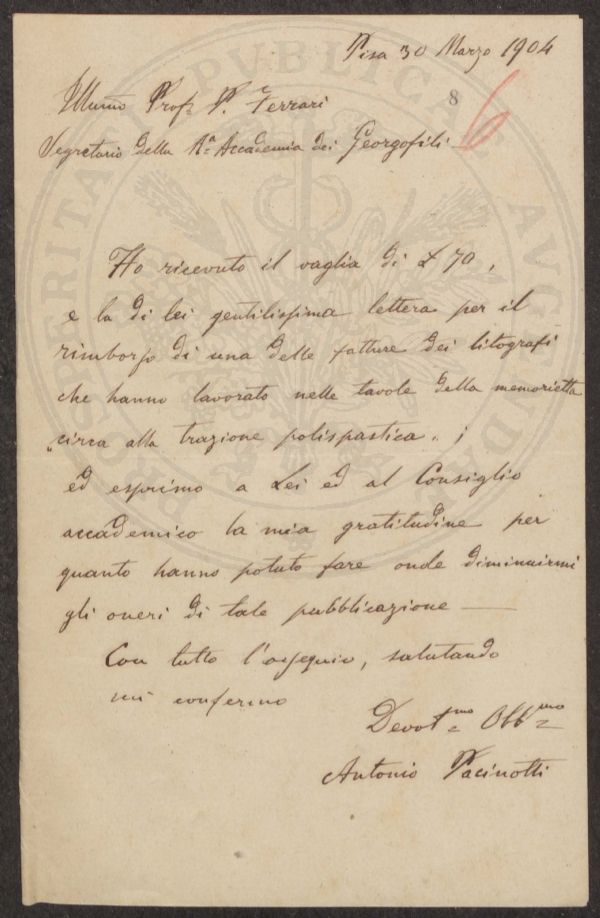 Pisa 30 Marzo 1904
Illumo Profr P. Ferrari
8 6
Segretario della Ra Accademia dei Georgofili
Ho ricevuto il vaglia di £ 70,
e la di lei gentilissima lettera per il
rimborso di una delle fatture dei litografi
che hanno lavorato nelle tavole della memorietta
"circa alla trazione polispastica" ;
ed esprimo a Lei ed al Consiglio
accademico la mia gratitudine per
quanto hanno potuto fare onde diminuirmi
gli oneri di tale pubblicazione —
Con tutto l'ossequio, salutando
mi confermo
Devotmo Obbmo
Antonio Pacinotti
PROSPERITATI PUBLICAE AUGENDAE